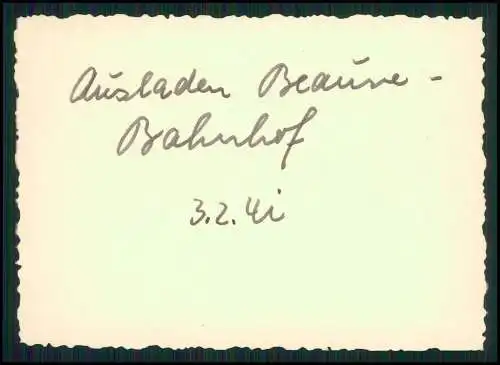 Ausladen Beaune -
Bahnhof
3.2.41